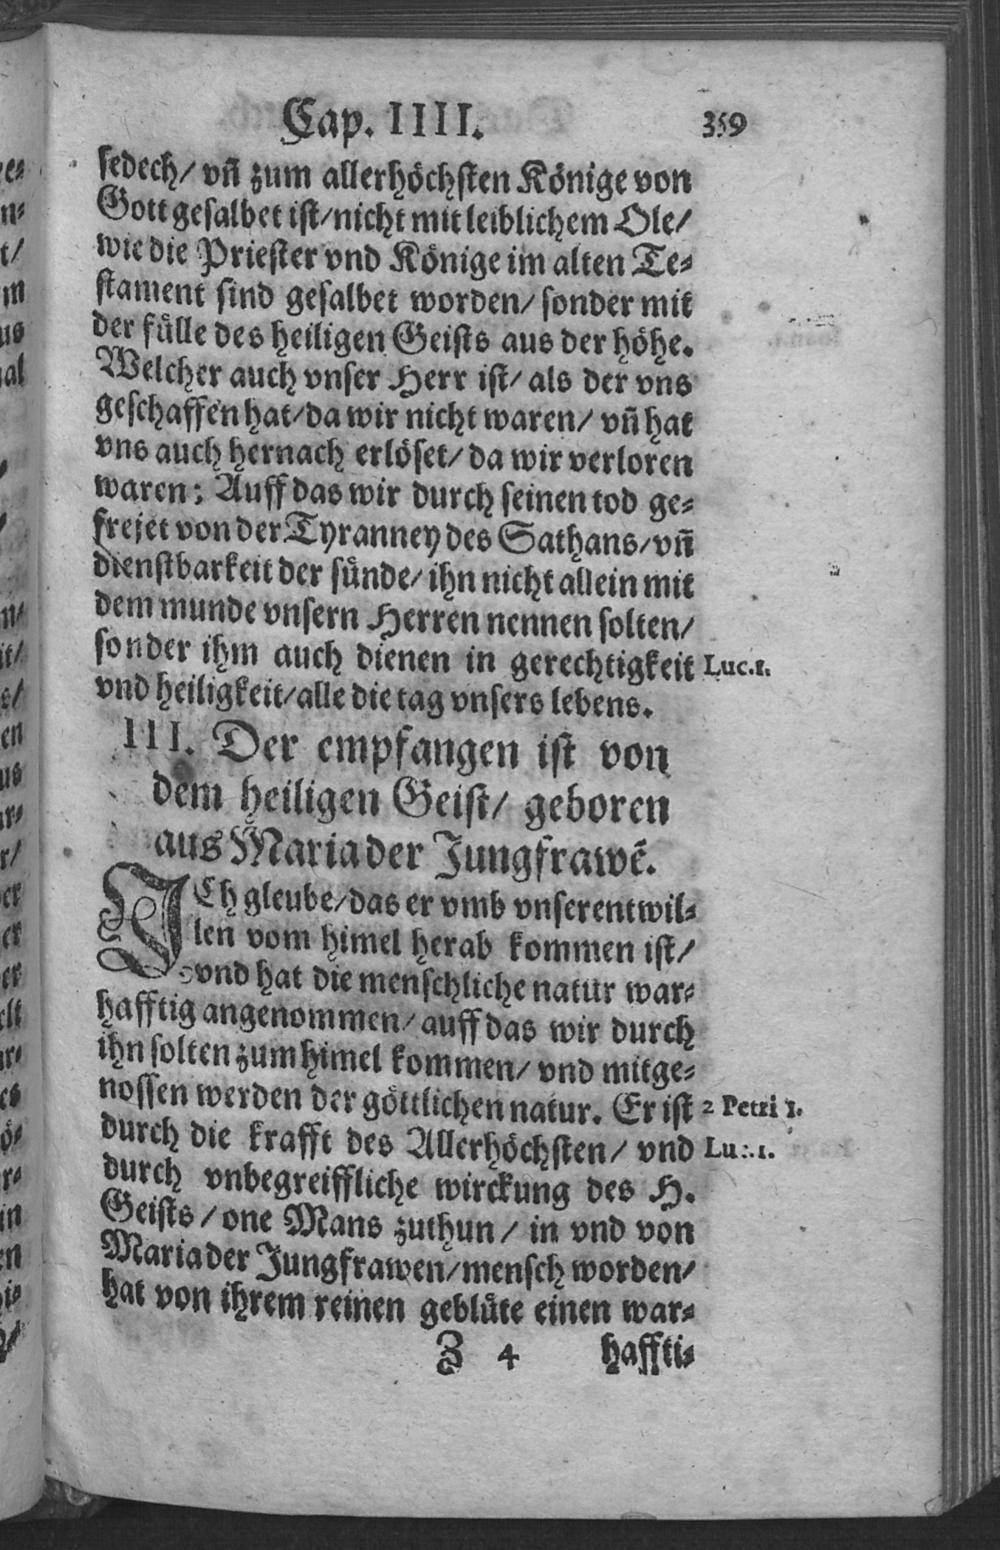 Cap. IIII. 359
sedech/ vñ zum allerhöchsten Könige von
Gott gesalbet ist/nicht mit leiblichem Ole/
wie die Priester vnd Könige im alten Te-
stament sind gesalbet worden/ sonder mit
der fülle des heiligen Geists aus der höhe.
Welcher auch vnser Herr ist/ als der vns
geschaffen hat/da wir nicht waren/ vñ hat
vns auch hernach erlöset/ da wir verloren
waren: Auff das wir durch seinen tod ge-
frejet von der Tyranney des Sathans/vñ
dienstbarkeit der sünde/ ihn nicht allein mit
dem munde vnsern Herren nennen solten/
sonder ihm auch dienen in gerechtigkeit Luc.1.
vnd heiligkeit/alle die tag vnsers lebens.
III. Der empfangen ist von
dem heiligen Geist/ geboren
aus Maria der Jungfrawẽ.
ICh gleube/das er vmb vnserentwil-
len vom himel herab kommen ist/
vnd hat die menschliche natur war-
hafftig angenommen/ auff das wir durch
ihn solten zum himel kommen/ vnd mitge-
nossen werden der göttlichen natur. Er ist 2 Petri 1.
durch die krafft des Allerhöchsten/ vnd Luc.1.
durch vnbegreiffliche wirckung des H.
Geists/one Mans zuthun/ in vnd von
Maria der Jungfrawen/mensch worden/
hat von ihrem reinen geblüte einen war-
Z 4 haffti-